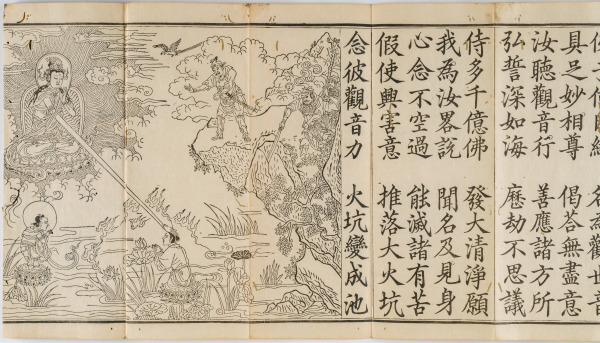 佛子何因緣 名為觀世音
具足妙相尊 偈荅無盡意
汝聽觀音行 善應諸方所
弘誓深如海 歷劫不思議
侍多千億佛 發大清淨願
我為汝畧說 聞名及見身
心念不空過 能滅諸有苦
假使興害意 推落大火坑
念彼觀音力 火坑變成池